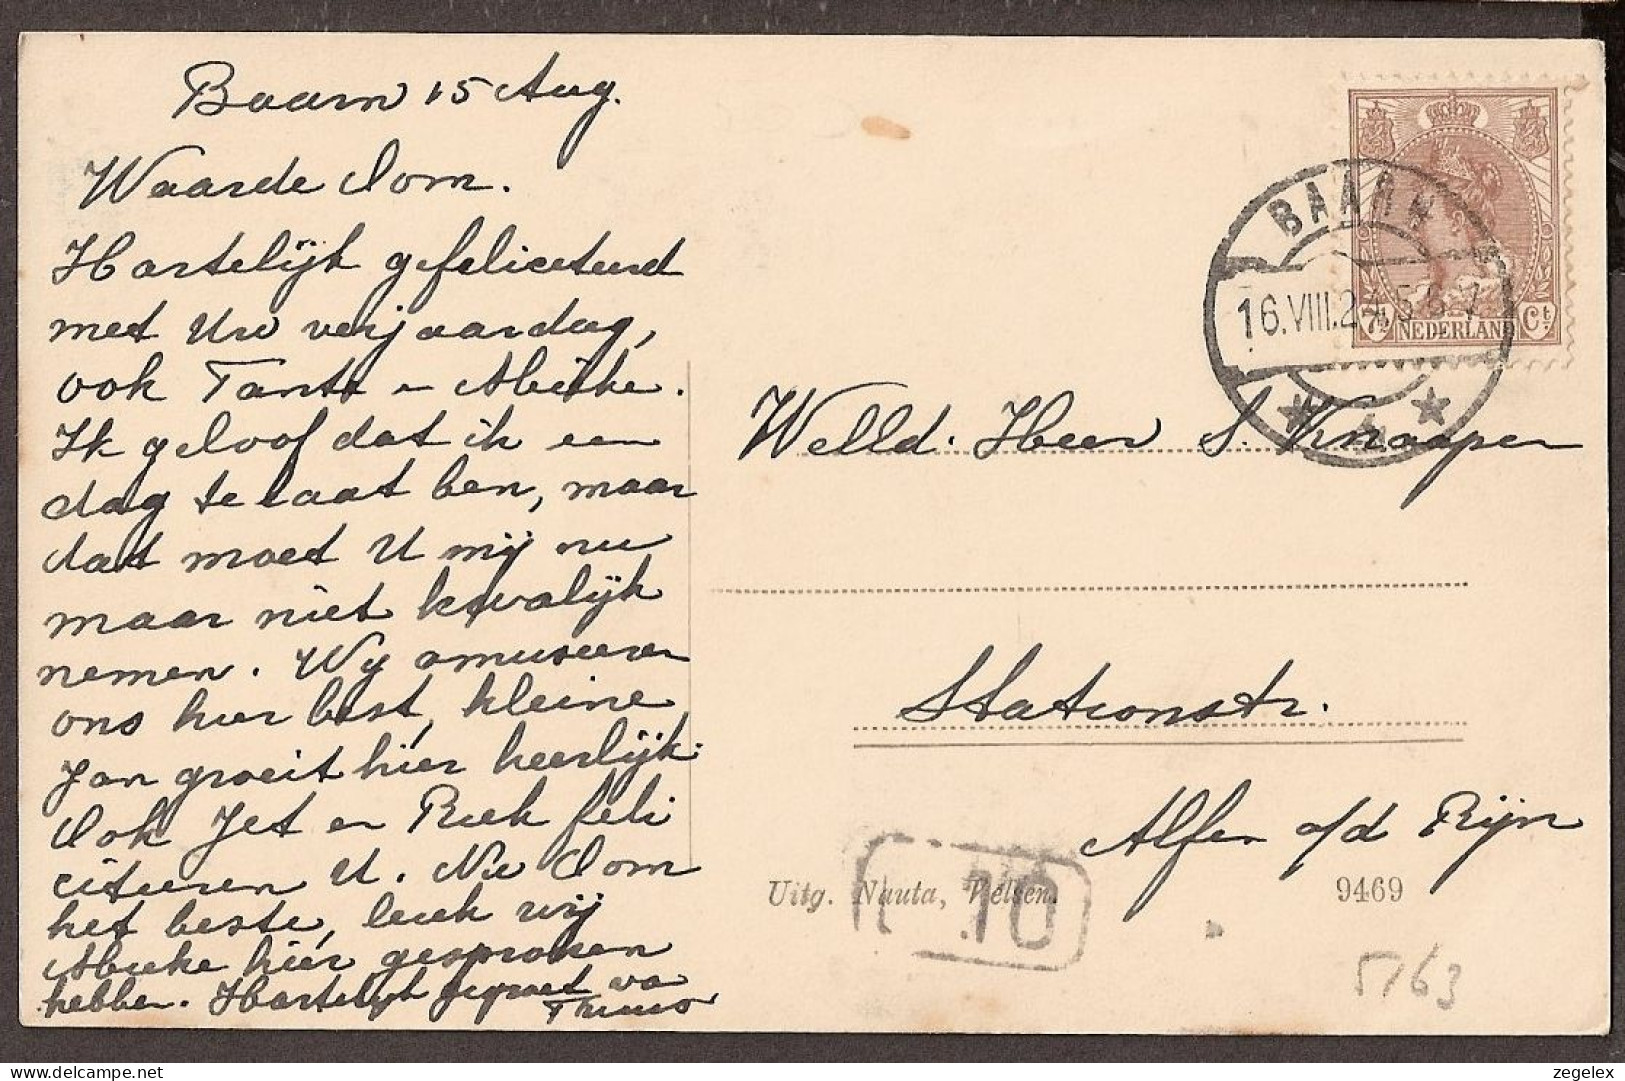 Baarn 15 Aug.
Waarde Oom.
Hartelijk gefeliciteerd
met Uw verjaardag,
ook Tante en Mieke.
Ik geloof dat ik een
dag te laat ben, maar
dat moet U mij nu
maar niet kwalijk
nemen. Wij amuseeren
ons hier best, kleine
Jan groeit hier heerlijk.
Ook Jet en Riek feli
citeeren U. Nu Oom
het beste, leuk wij
Mieke hier gesproken
hebben. Hartelijk gegroet va
Truus
BAARN
16.VIII.24.5-6 N
7½ NEDERLAND Ct
WelEd. Heer S. Knaapen
Stationstr.
Alfen a/d Rijn
Uitg. Nauta, Velsen.
9469
10
5163
zegelex